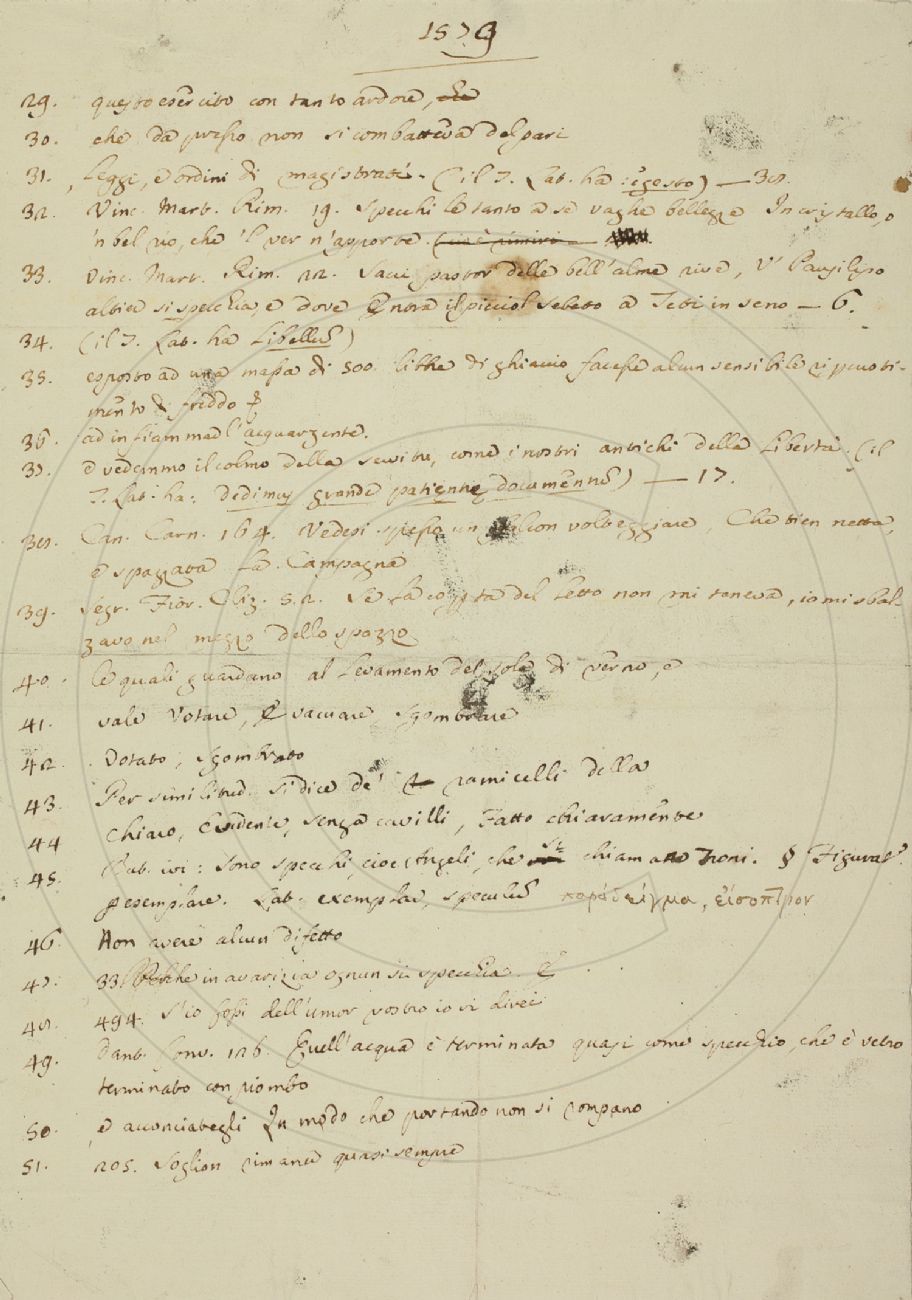 1579
29. questo esercito con tanto ardore, che
30. che da presso non si combatteva del pari
31. Leggi, e ordini di magistrati. (il T. Lat. ha: egesto) — 38.
32. Vinc. Mart. Rim. 19. Specchi le tanto a se vaghe bellezze In cristallo, o
'n bel rio, che 'l ver n'apporte.
33. Vinc. Mart. Rim. 22. Sacri pastor delle bell'alme rive, U' Pausilipo
altier si specchia, e dove Onora il picciol Sebeto a Teti in seno — 6.
34. (il T. Lat. ha Libellũ)
35. esposto ad una massa di 500. libbre di ghiaccio facesse alcun sensibile ripercoti-
mento di freddo
36. ad infiammar l'acquarzente.
37. e vedemmo il colmo della servitù, come i nostri antichi della Libertà. (il
T. Lat. ha: dedimus grande patientiẹ documentũ) — 17.
38. Can. Carn. 164. Vedesi spesso un falcon volteggiare, Che tien netta,
e spazzata la Campagna
39. Segr. Fior. Cliz. 5. 2. Se la coppta del Letto non mi teneva, io mi sbal-
zavo nel mezzo dello spazzo
40. le quali guardano al Levamento del sole di verno, e
41. vale Votare, Evacuare, Sgombrare
42. Votato, Sgombrato
43. Per similitud. si dice de' ramicelli della
44 Chiaro, Evidente, senza cavilli, Fatto chiaramente
45. But. ivi: Sono specchi, cioe Angeli, che si chiamano Troni. § Figurat.
p esemplare. Lat. exemplar, speculũ παράδειγμα, εἴσοπτρον
46. Non avere alcun difetto
47. 33. Perche in avarizia ognun si specchia. E
48. 494. S'io fossi dell'umor vostro io si direi
49. Dant. Conv. 126. Quell'acqua è terminata quasi come specchio, che è vetro
terminato con piombo
50. e acconciategli In modo che portando non si rompano
51. 205. Soglion rimaner quasi sempre